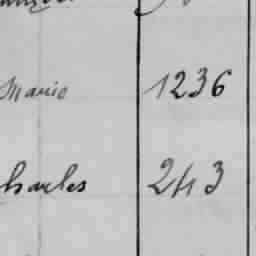 Mario 1236
harles 243